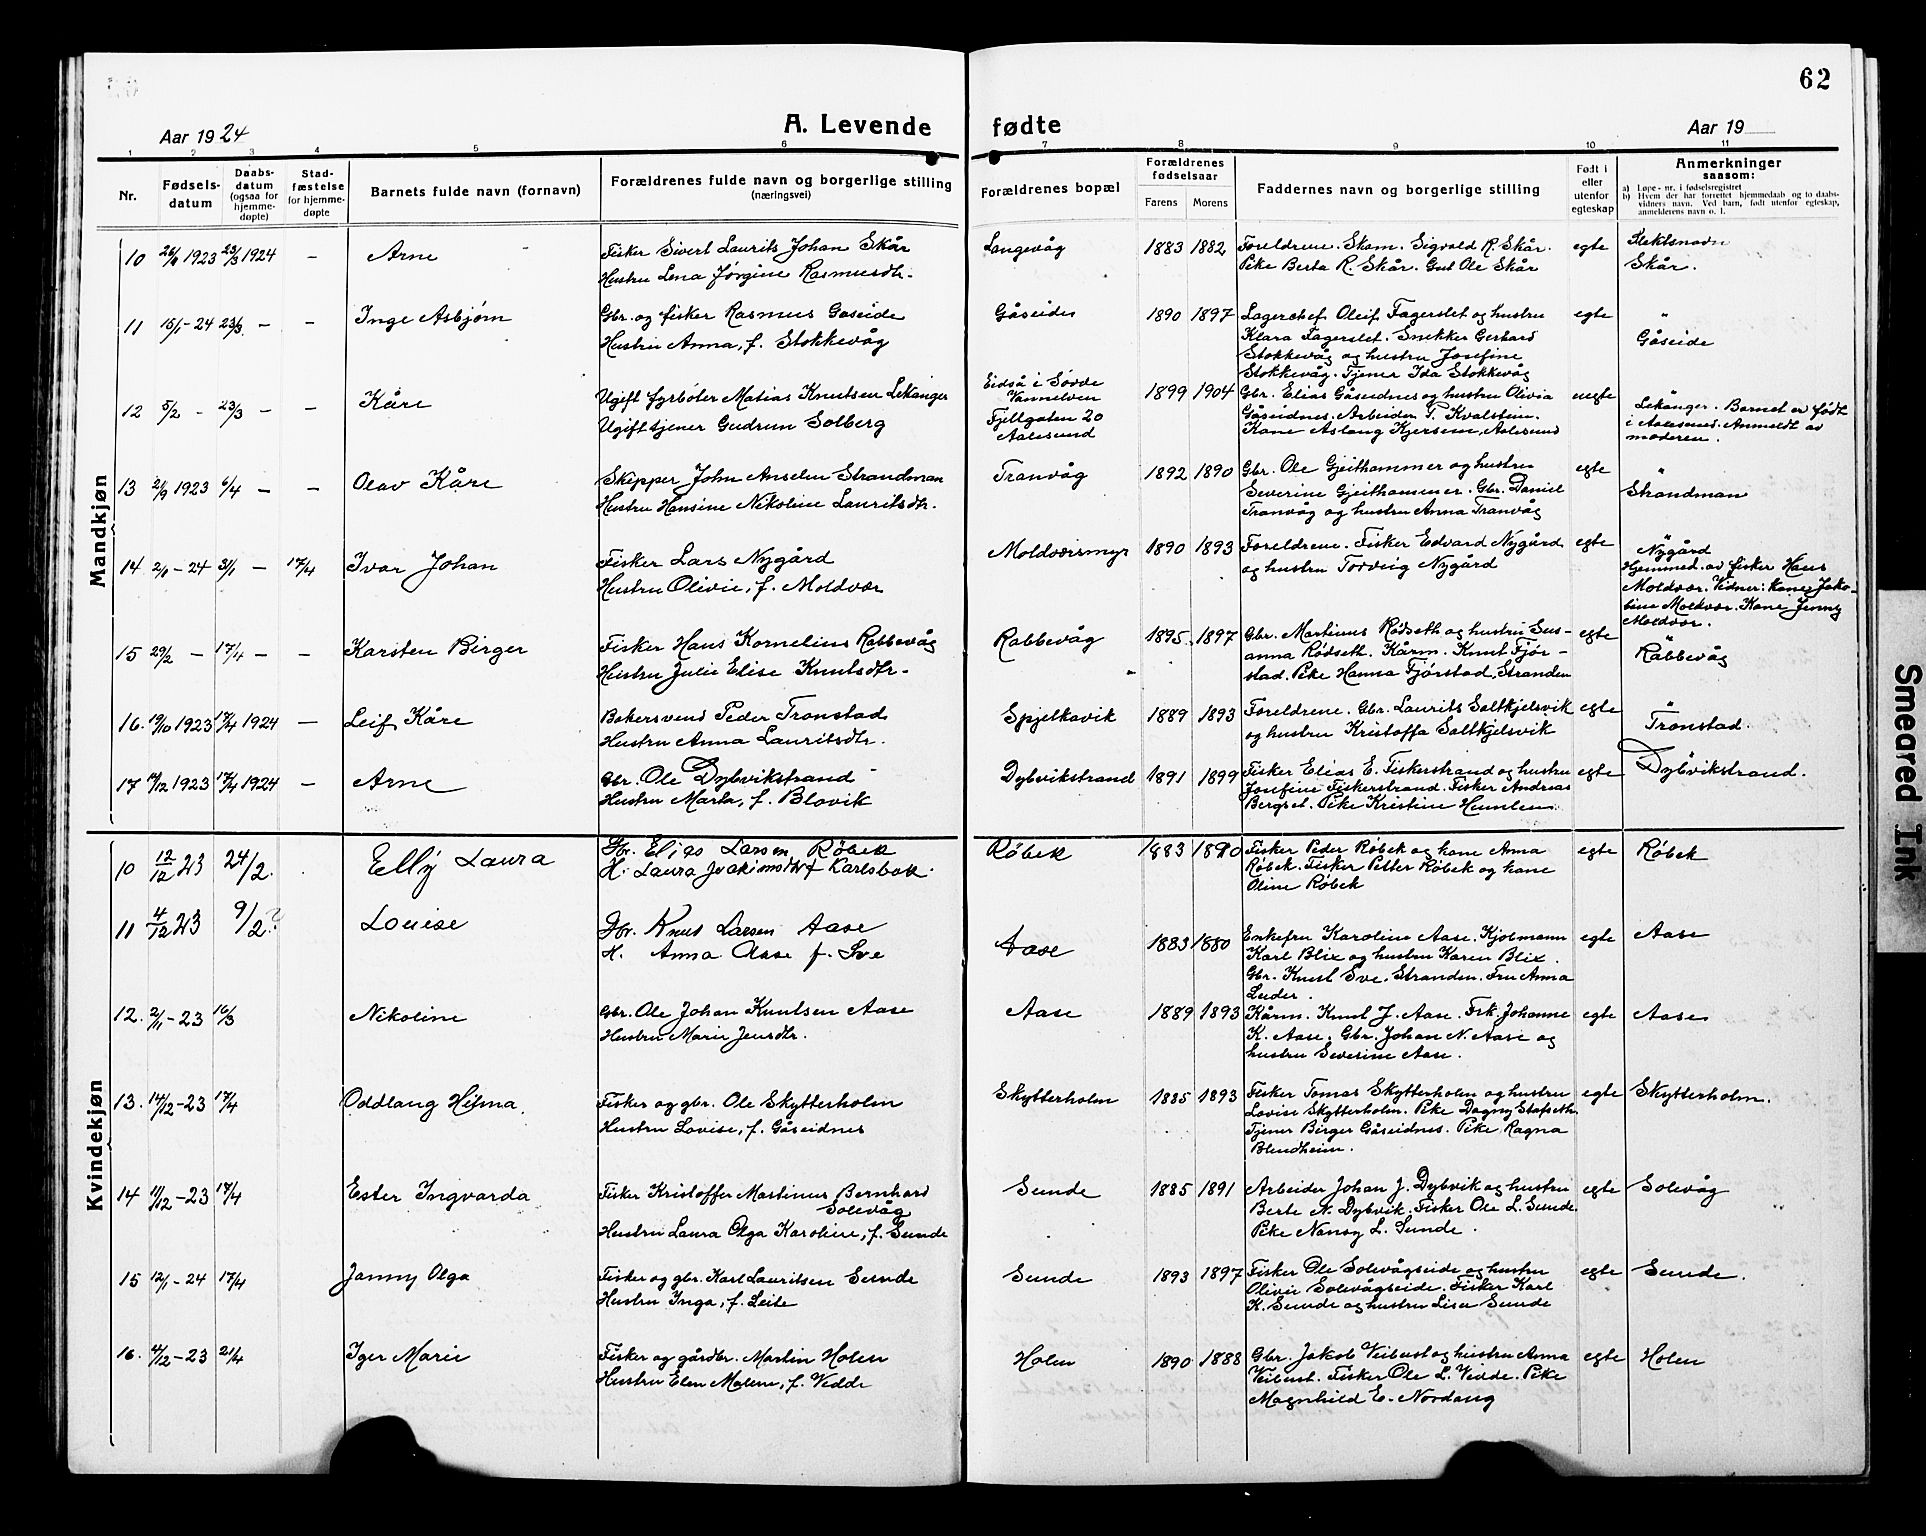 62
Aar 1924
A. Levende
fødte
Aar 19
1 2 3 4 5 6 7 8 9 10 11
Nr.
Fødsels-
datum
Daabs-
datum
(ogsaa for
hjemme-
døpte)
Stad-
fæstelse
for hjemme-
døpte
Barnets fulde navn (fornavn)
Forældrenes fulde navn og borgerlige stilling
(næringsvei)
Forældrenes bopæl
Forældrenes
fødselsaar
Farens
Morens
Faddernes navn og borgerlige stilling
Født i
eller
utenfor
egteskap
Anmerkninger
saasom:
a) Løpe-nr. i fødselsregistret
b) Hvem der har forrettet hjemmedaab og to daabs-
vidners navn. Ved barn, født utenfor egteskap,
anmelderens navn o. l.
Mandkjøn
10 1923 23/3 1924 - Arne
Fisker Sivert Laurits Johan Skår
Hustru Lena Jørgine Rasmusdtr.
Langevåg 1883 1882
Foreldrene. Skom. Sigvald R. Skår.
Pike Berta R. Skår. Gut Ole Skår
egte
Slektsnavn
Skår.
11 15/1-24 23/3 - - Inge Asbjørn
Gbr. og fisker Rasmus Gåseide
Hustru Anna, f. Stokkevåg
Gåseide 1890 1897
Lagerchef Oleif Fagerslet og hustru
Klara Fagerslet. Snekker Gerhard
Stokkevåg og hustru Josefine
Stokkevåg. Tjener Ida Stokkevåg
egte
"
Gåseide
12 5/2 - 23/3 - - Kåre
Ugift fyrbøter Matias Knutsen Lekanger
Ugift tjener Gudrun Solberg
Eidså i Søvde
Vannelven
Fjellgaten 20
Aalesund
1899 1904
Gbr. Elias Gåseidnes og hustru Olivia
Gåseidnes. Arbeider P. Kvalstein.
Kone Aslaug Kjersem, Aalesund
uegte
"
Lekanger. Barnet er født
i Aalesund. Anmeldt av
moderen.
13 2/9 1923 6/4 - - Olav Kåre
Skipper John Anselm Strandman
Hustru Hansine Nikoline Lauritsdtr.
Tranvåg 1892 1890
Gbr. Ole Gjeithammer og hustru
Severine Gjeithammer. Gbr. Daniel
Tranvåg og hustru Anna Tranvåg
egte
"
Strandman
14 2/1-24 3/1 - 17/4 Ivar Johan
Fisker Lars Nygård
Hustru Olivie, f. Moldvær
Moldværsmyr 1890 1893
Foreldrene. Fisker Edvard Nygård
og hustru Tordvig Nygård
egte
"
Nygård
Hjemmed. av fisker Hans
Moldvær. Vidner: Kone Jako-
bine Moldvær. Kone Jenny
Moldvær.
15 29/2 - 17/4 - - Karsten Birger
Fisker Hans Kornelius Rabbevåg
Hustru Julie Elise Knutsdtr.
Rabbevåg 1895 1897
Gbr. Martinus Rødseth og hustru Sus-
anna Rødseth. Kårm. Knut Fjør-
stad. Pike Hanna Fjørstad, Stranden
egte
"
Rabbevåg
16. 19/10 1923 17/4 1924 - Leif Kåre
Bakersvend Peder Tronstad
Hustru Anna Lauritsdtr.
Spjelkavik 1889 1893
Foreldrene. Gbr. Laurits Saltkjelsvik
og hustru Kristoffa Saltkjelsvik
egte
"
Tronstad.
17 1923 17/4 1924 - Arne
Gbr. Ole Dybvikstrand
Hustru Marta, f. Blovik
Dybvikstrand 1891 1899
Fisker Elias E. Fiskerstrand og hustru
Josefine Fiskerstrand. Fisker Andreas
Bergset. Pike Kristine Humlen
egte
Dybvikstrand.
Kvindekjøn
10 12/12 23 24/2. Elly Laura
Gbr. Elias Larsen Røbek
H. Laura Joakimsdtr f Karlsbak.
Røbek 1883 1890
Fisker Peder Røbek og kone Anna
Røbek. Fisker Petter Røbek og kone
Oline Røbek
egte
Røbek
11 4/12 23 9/2? Louise
Gbr. Knut Larsen Aase
H. Anna Aase f. Sve
Aase 1883 1880
Enkefru Karoline Aase. Kjølmann
Karl Blix og hustru Karen Blix.
Gbr. Knut Sve, Stranden. Fru Anna
Leder.
egte
Aase
12. 2/11-23 16/3 Nikoline
Gbr. Ole Johan Knutsen Aase
Hustru Marie Jensdtr.
Aase 1889 1893
Kårm. Knut J. Aase. Frk. Johanne
K. Aase. Gbr. Johan N. Aase og
hustru Severine Aase.
egte
Aase
13. 14/12-23 17/4 Oddlaug Hilma.
Fisker og gbr. Ole Skytterholm
Hustru Lovise, f. Gåseidnes
Skytterholm 1885 1893
Fisker Tomas Skytterholm og hustru
Lovise Skytterholm. Pike Dagny Stafseth.
Tjener Birger Gåseidnes. Pike Ragna
Blindheim.
egte
Skytterholm.
14 11/12-23 17/4 Ester Ingvarda
Fisker Kristoffer Martinus Bernhard
Solevåg
Hustru Laura Olga Karoline, f. Sunde
Sunde 1885 1891
Arbeider Johan J. Dybvik og hustru
Berte N. Dybvik. Fisker Ole L. Sunde.
Pike Nansy L. Sunde.
egte
Solevåg
15 12/1-24 17/4 Janny Olga
Fisker og gbr. Karl Lauritsen Sunde
Hustru Inga, f. Leite
Sunde 1893 1897
Fisker Ole Solevågseide og hustru
Olivie Solevågseide. Fisker Karl
K. Sunde og hustru Lisa Sunde
egte
Sunde.
16. 4/12-23 21/4 Iger Marie
Fisker og gårdbr. Martin Holen
Hustru Elen Malene, f. Vedde
Holen 1890 1888
Gbr. Jakob Veibust og hustru Anna
Veibust. Fisker Ole L. Vedde. Pike
Magnhild E. Nordang
egte
Holen
Smeared Ink